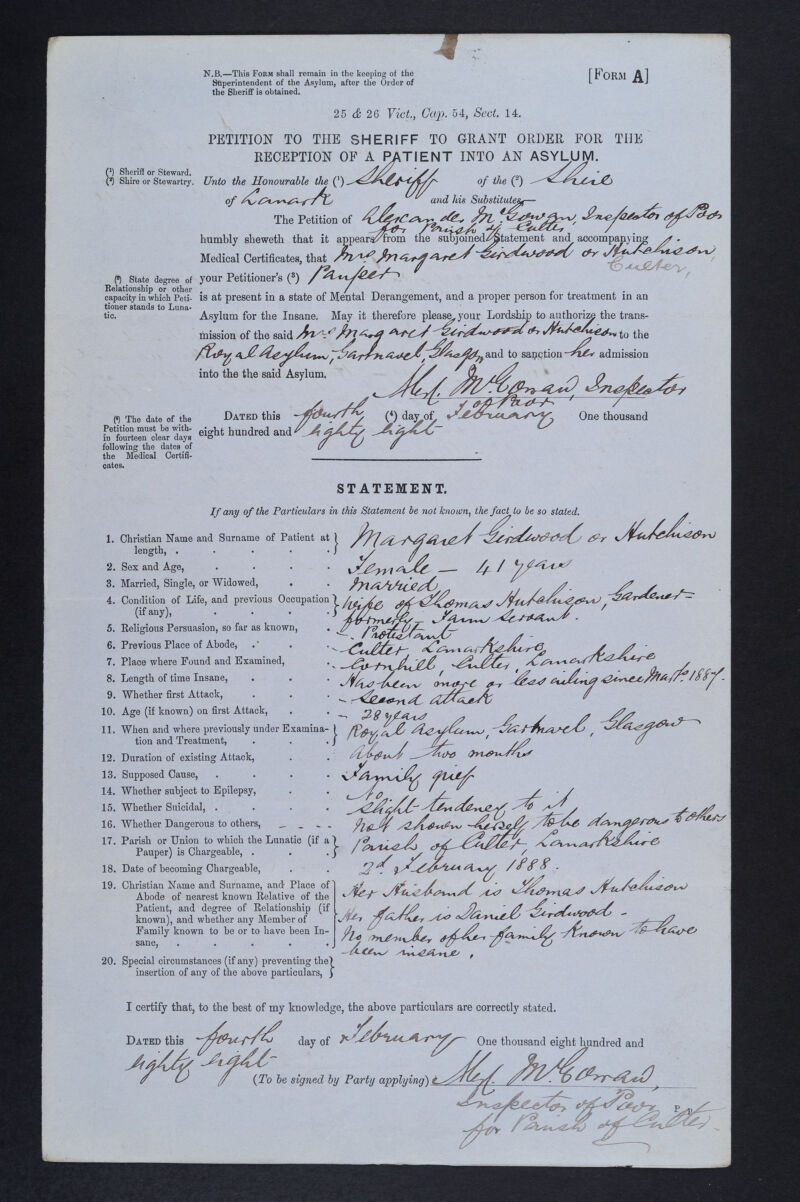 N.B.—This Form shall remain in the keeping of the
Superintendent of the Asylum, after the Order of
the Sheriff is obtained.
[Form A]
25 & 26 Vict., Cap. 54, Sect. 14.
PETITION TO THE SHERIFF TO GRANT ORDER FOR THE
RECEPTION OF A PATIENT INTO AN ASYLUM.
(1) Sheriff or Steward.
(2) Shire or Stewartry.
Unto the Honourable the (1) Sheriff of the (2) Shire
of Lanark and his Substitutes
The Petition of Alexander McGowan, Inspector of Poor
for Parish of Culter
humbly sheweth that it appears from the subjoined Statement and accompanying
Medical Certificates, that Mrs Margaret Girdwood or Hutchison,
Culter,
(3) State degree of
Relationship or other
capacity in which Peti-
tioner stands to Luna-
tic.
your Petitioner's (3) Pauper
is at present in a state of Mental Derangement, and a proper person for treatment in an
Asylum for the Insane. May it therefore please your Lordship to authorize the trans-
mission of the said Mrs Margaret Girdwood or Hutchison to the
Royal Asylum, Gartnavel, Glasgow and to sanction her admission
into the the said Asylum.
Alexr. McGowan, Inspector
of Poor
(4) The date of the
Petition must be with-
in fourteen clear days
following the dates of
the Medical Certifi-
cates.
Dated this fourth (4) day of February One thousand
eight hundred and eighty eight
STATEMENT.
If any of the Particulars in this Statement be not known, the fact to be so stated.
1. Christian Name and Surname of Patient at length, . Margaret Girdwood or Hutchison
2. Sex and Age, Female — 41 years
3. Married, Single, or Widowed, Married
4. Condition of Life, and previous Occupation (if any), Wife of Thomas Hutchison, Gardener—
formerly Farm Servant.
5. Religious Persuasion, so far as known, — Protestant
6. Previous Place of Abode, — Culter, Lanarkshire
7. Place where Found and Examined, — Cornhill, Culter, Lanarkshire
8. Length of time Insane, Has been more or less ailing since Mart. 1887.
9. Whether first Attack, — Second attack
10. Age (if known) on first Attack, — 28 years
11. When and where previously under Examina-
tion and Treatment, Royal Asylum, Gartnavel, Glasgow
12. Duration of existing Attack, About two months
13. Supposed Cause, Family grief
14. Whether subject to Epilepsy, No
15. Whether Suicidal, Slight tendency to it
16. Whether Dangerous to others, Not shown herself to be dangerous to others
17. Parish or Union to which the Lunatic (if a
Pauper) is Chargeable, Parish of Culter, Lanarkshire
18. Date of becoming Chargeable, 2d February 1888.
19. Christian Name and Surname, and Place of
Abode of nearest known Relative of the
Patient, and degree of Relationship (if
known), and whether any Member of
Family known to be or to have been In-
sane,
Her Husband is Thomas Hutchison
Her father is Daniel Girdwood —
No member of her family known to have
been insane.
20. Special circumstances (if any) preventing the
insertion of any of the above particulars,
I certify that, to the best of my knowledge, the above particulars are correctly stated.
Dated this fourth day of February One thousand eight hundred and
eighty eight
(To be signed by Party applying) Alexr. McGowan,
Inspector of Poor
for Parish of Culter.